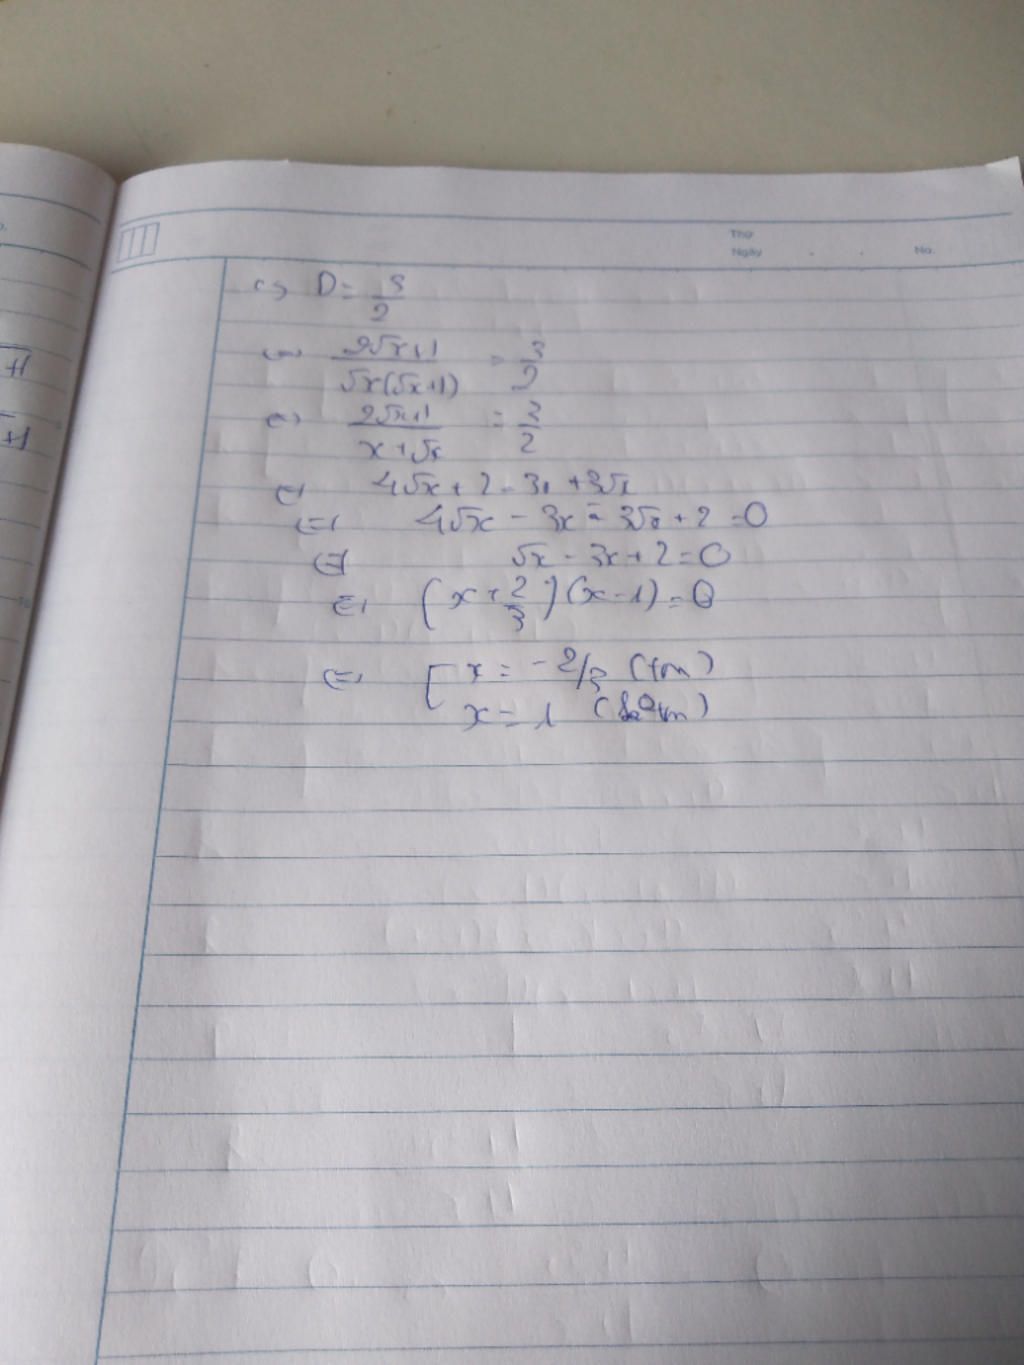 Thứ
Ngày . . No.
c, D = 3/2
<=> (2√x+1)/(√x(√x+1)) = 3/2
<=> (2√x+1)/(x+√x) = 3/2
<=> 4√x + 2 = 3x + 3√x
<=> 4√x - 3x - 3√x + 2 = 0
<=> √x - 3x + 2 = 0
<=> (x + 2/3)(x - 1) = 0
<=> [ x = -2/3 (tm)
x = 1 (ko tm)
+1
+1